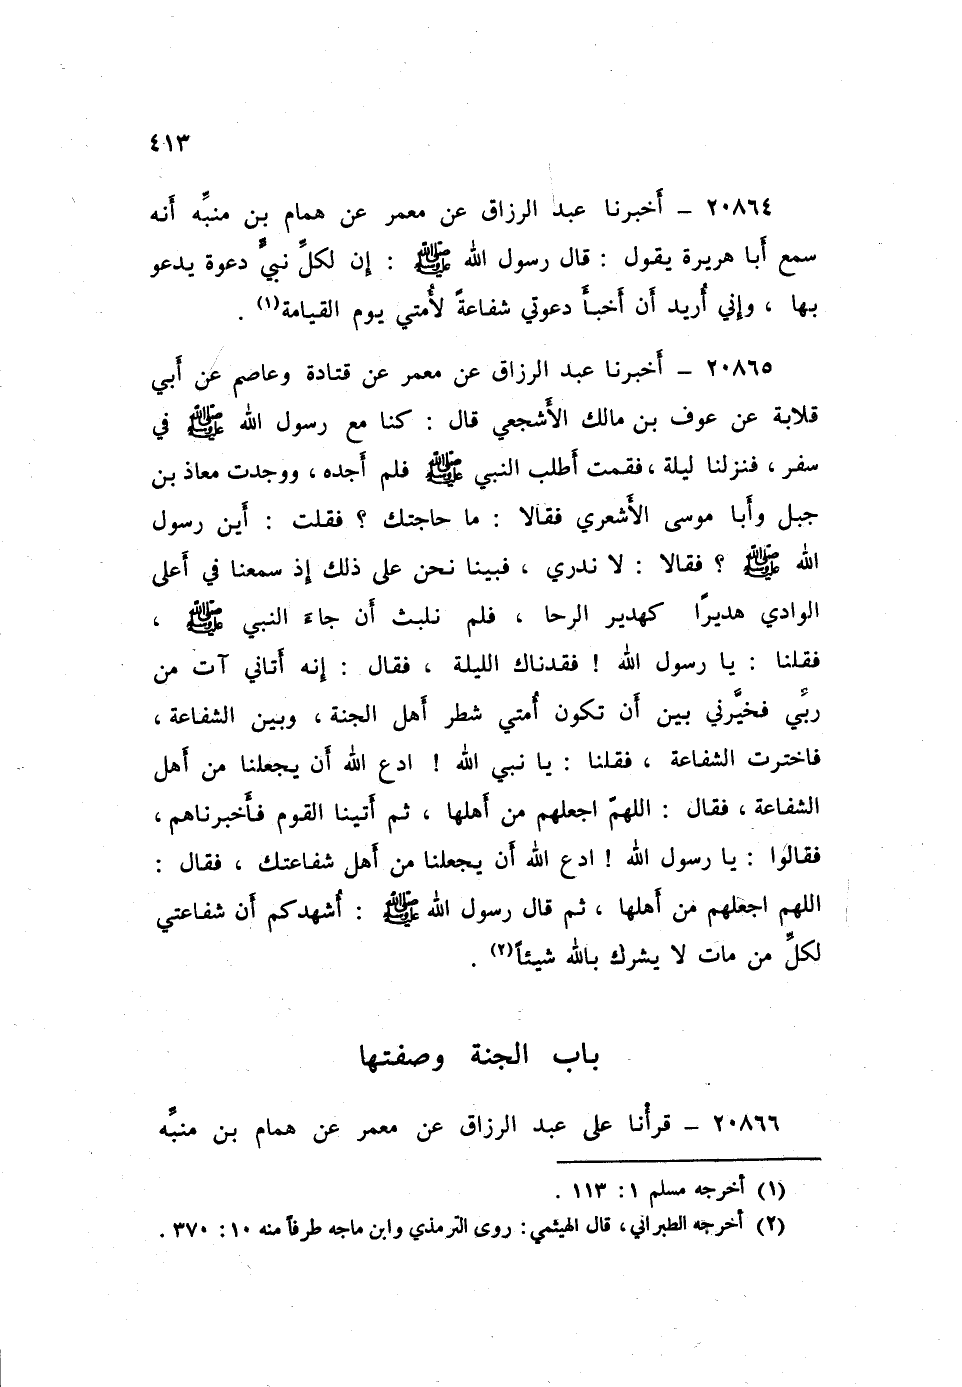 ٤١٣
٢٠٨٦٤ ــ أخبرنا عبد الرزاق عن معمر عن همام بن منبِّه أنه
سمع أبا هريرة يقول : قال رسول الله ﷺ : إن لكلِّ نبيٍّ دعوة يدعو
بها ، وإني أُريد أن أخبأَ دعوتي شفاعةً لأُمتي يوم القيامة(١) .
٢٠٨٦٥ ــ أخبرنا عبد الرزاق عن معمر عن قتادة وعاصم عن أبي
قلابة عن عوف بن مالك الأشجعي قال : كنا مع رسول الله ﷺ في
سفر ، فنزلنا ليلة ، فقمت أطلب النبي ﷺ فلم أجده ، ووجدت معاذ بن
جبل وأبا موسى الأشعري فقالا : ما حاجتك ؟ فقلت : أين رسول
الله ﷺ ؟ فقالا : لا ندري ، فبينا نحن على ذلك إذ سمعنا في أعلى
الوادي هديرًا كهدير الرحا ، فلم نلبث أن جاءَ النبي ﷺ ،
فقلنا : يا رسول الله ! فقدناك الليلة ، فقال : إنه أتاني آت من
ربِّي فخيَّرني بين أن تكون أُمتي شطر أهل الجنة ، وبين الشفاعة ،
فاخترت الشفاعة ، فقلنا : يا نبي الله ! ادع الله أن يجعلنا من أهل
الشفاعة ، فقال : اللهمّ اجعلهم من أهلها ، ثم أتينا القوم فأخبرناهم ،
فقالوا : يا رسول الله ! ادع الله أن يجعلنا من أهل شفاعتك ، فقال :
اللهم اجعلهم من أهلها ، ثم قال رسول الله ﷺ : أُشهدكم أن شفاعتي
لكلِّ من مات لا يشرك بالله شيئاً(٢) .
باب الجنة وصفتها
٢٠٨٦٦ ــ قرأنا على عبد الرزاق عن معمر عن همام بن منبِّه
(١) أخرجه مسلم ١ : ١١٣ .
(٢) أخرجه الطبراني ، قال الهيثمي : روى الترمذي وابن ماجه طرفاً منه ١٠ : ٣٧٠ .